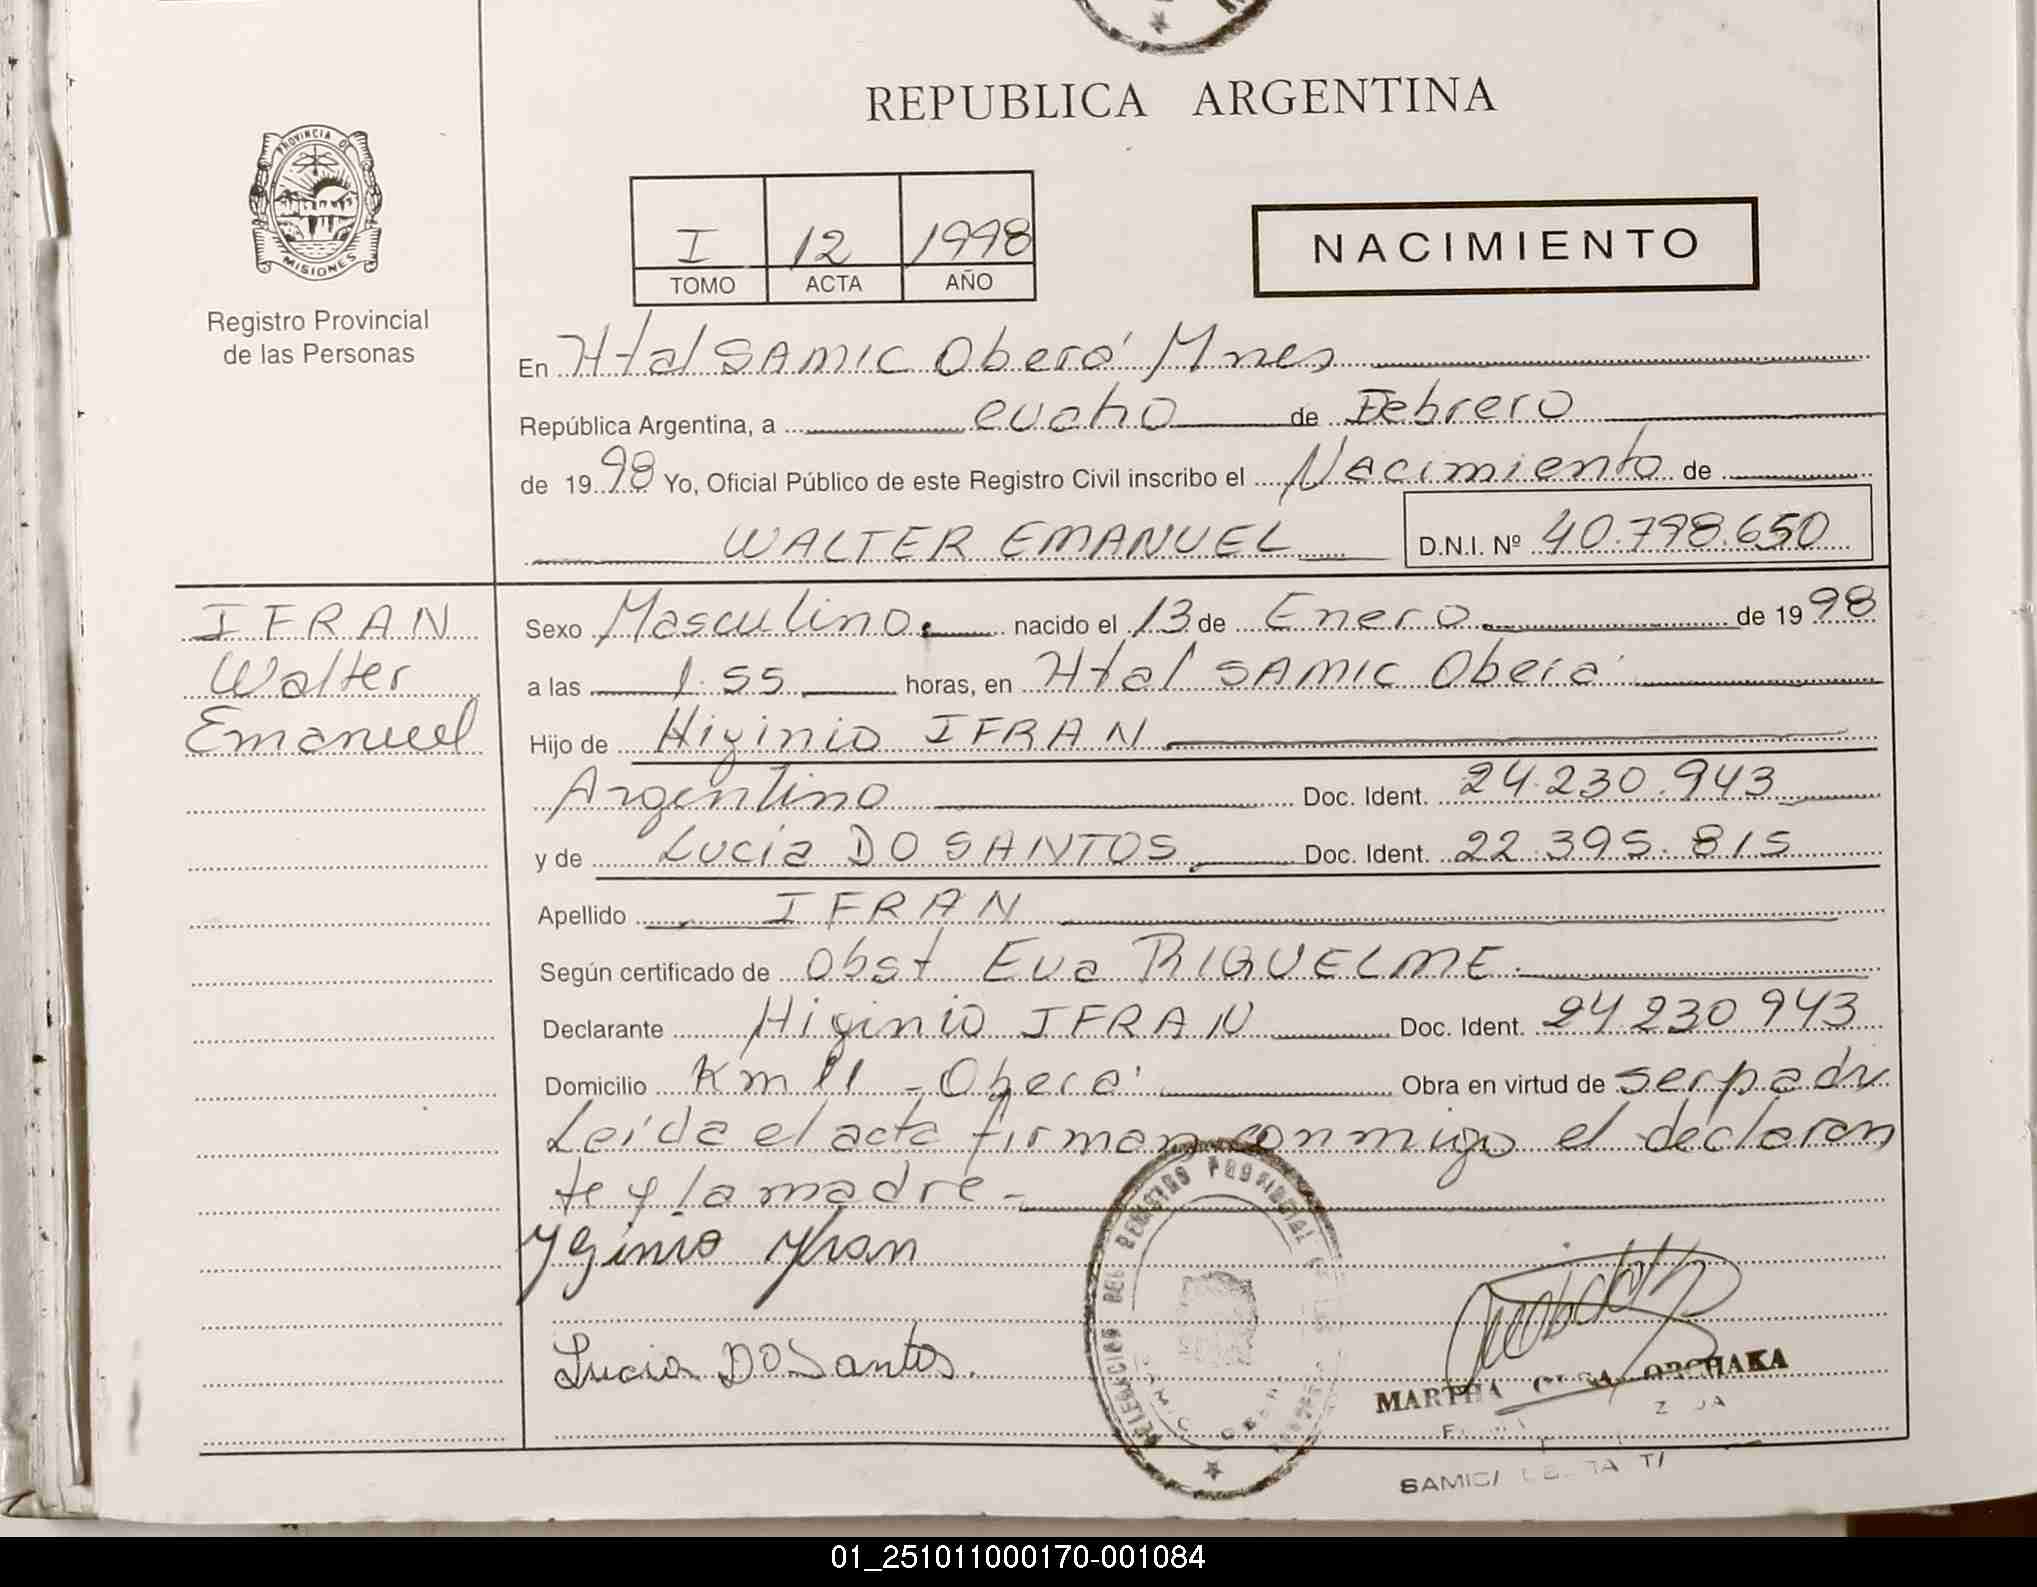 REPUBLICA ARGENTINA
PROVINCIA DE
MISIONES
Registro Provincial
de las Personas
I 12 1998
TOMO ACTA AÑO
NACIMIENTO
En Htal SAMIC Oberá Mnes
República Argentina, a cuatro de Febrero
de 1998 Yo, Oficial Público de este Registro Civil inscribo el Nacimiento de
WALTER EMANUEL D.N.I. Nº 40.798.650
IFRAN
Walter
Emanuel
Sexo Masculino nacido el 13 de Enero de 1998
a las 1.55 horas, en Htal SAMIC Oberá
Hijo de Higinio IFRAN
Argentino Doc. Ident. 24.230.943
y de Lucia DO SANTOS Doc. Ident. 22.395.815
Apellido IFRAN
Según certificado de Obst Eva RIQUELME
Declarante Higinio IFRAN Doc. Ident. 24 230 943
Domicilio Km 11 - Oberá Obra en virtud de ser padre
Leída el acta firman conmigo el declaran
te y la madre -
Yginio Yfran
Lucia DO Santos.
DELEGACION DEL REGISTRO PROVINCIAL DE LAS
MARTHA OLGA ORCHAKA
SAMIC/
01_251011000170-001084